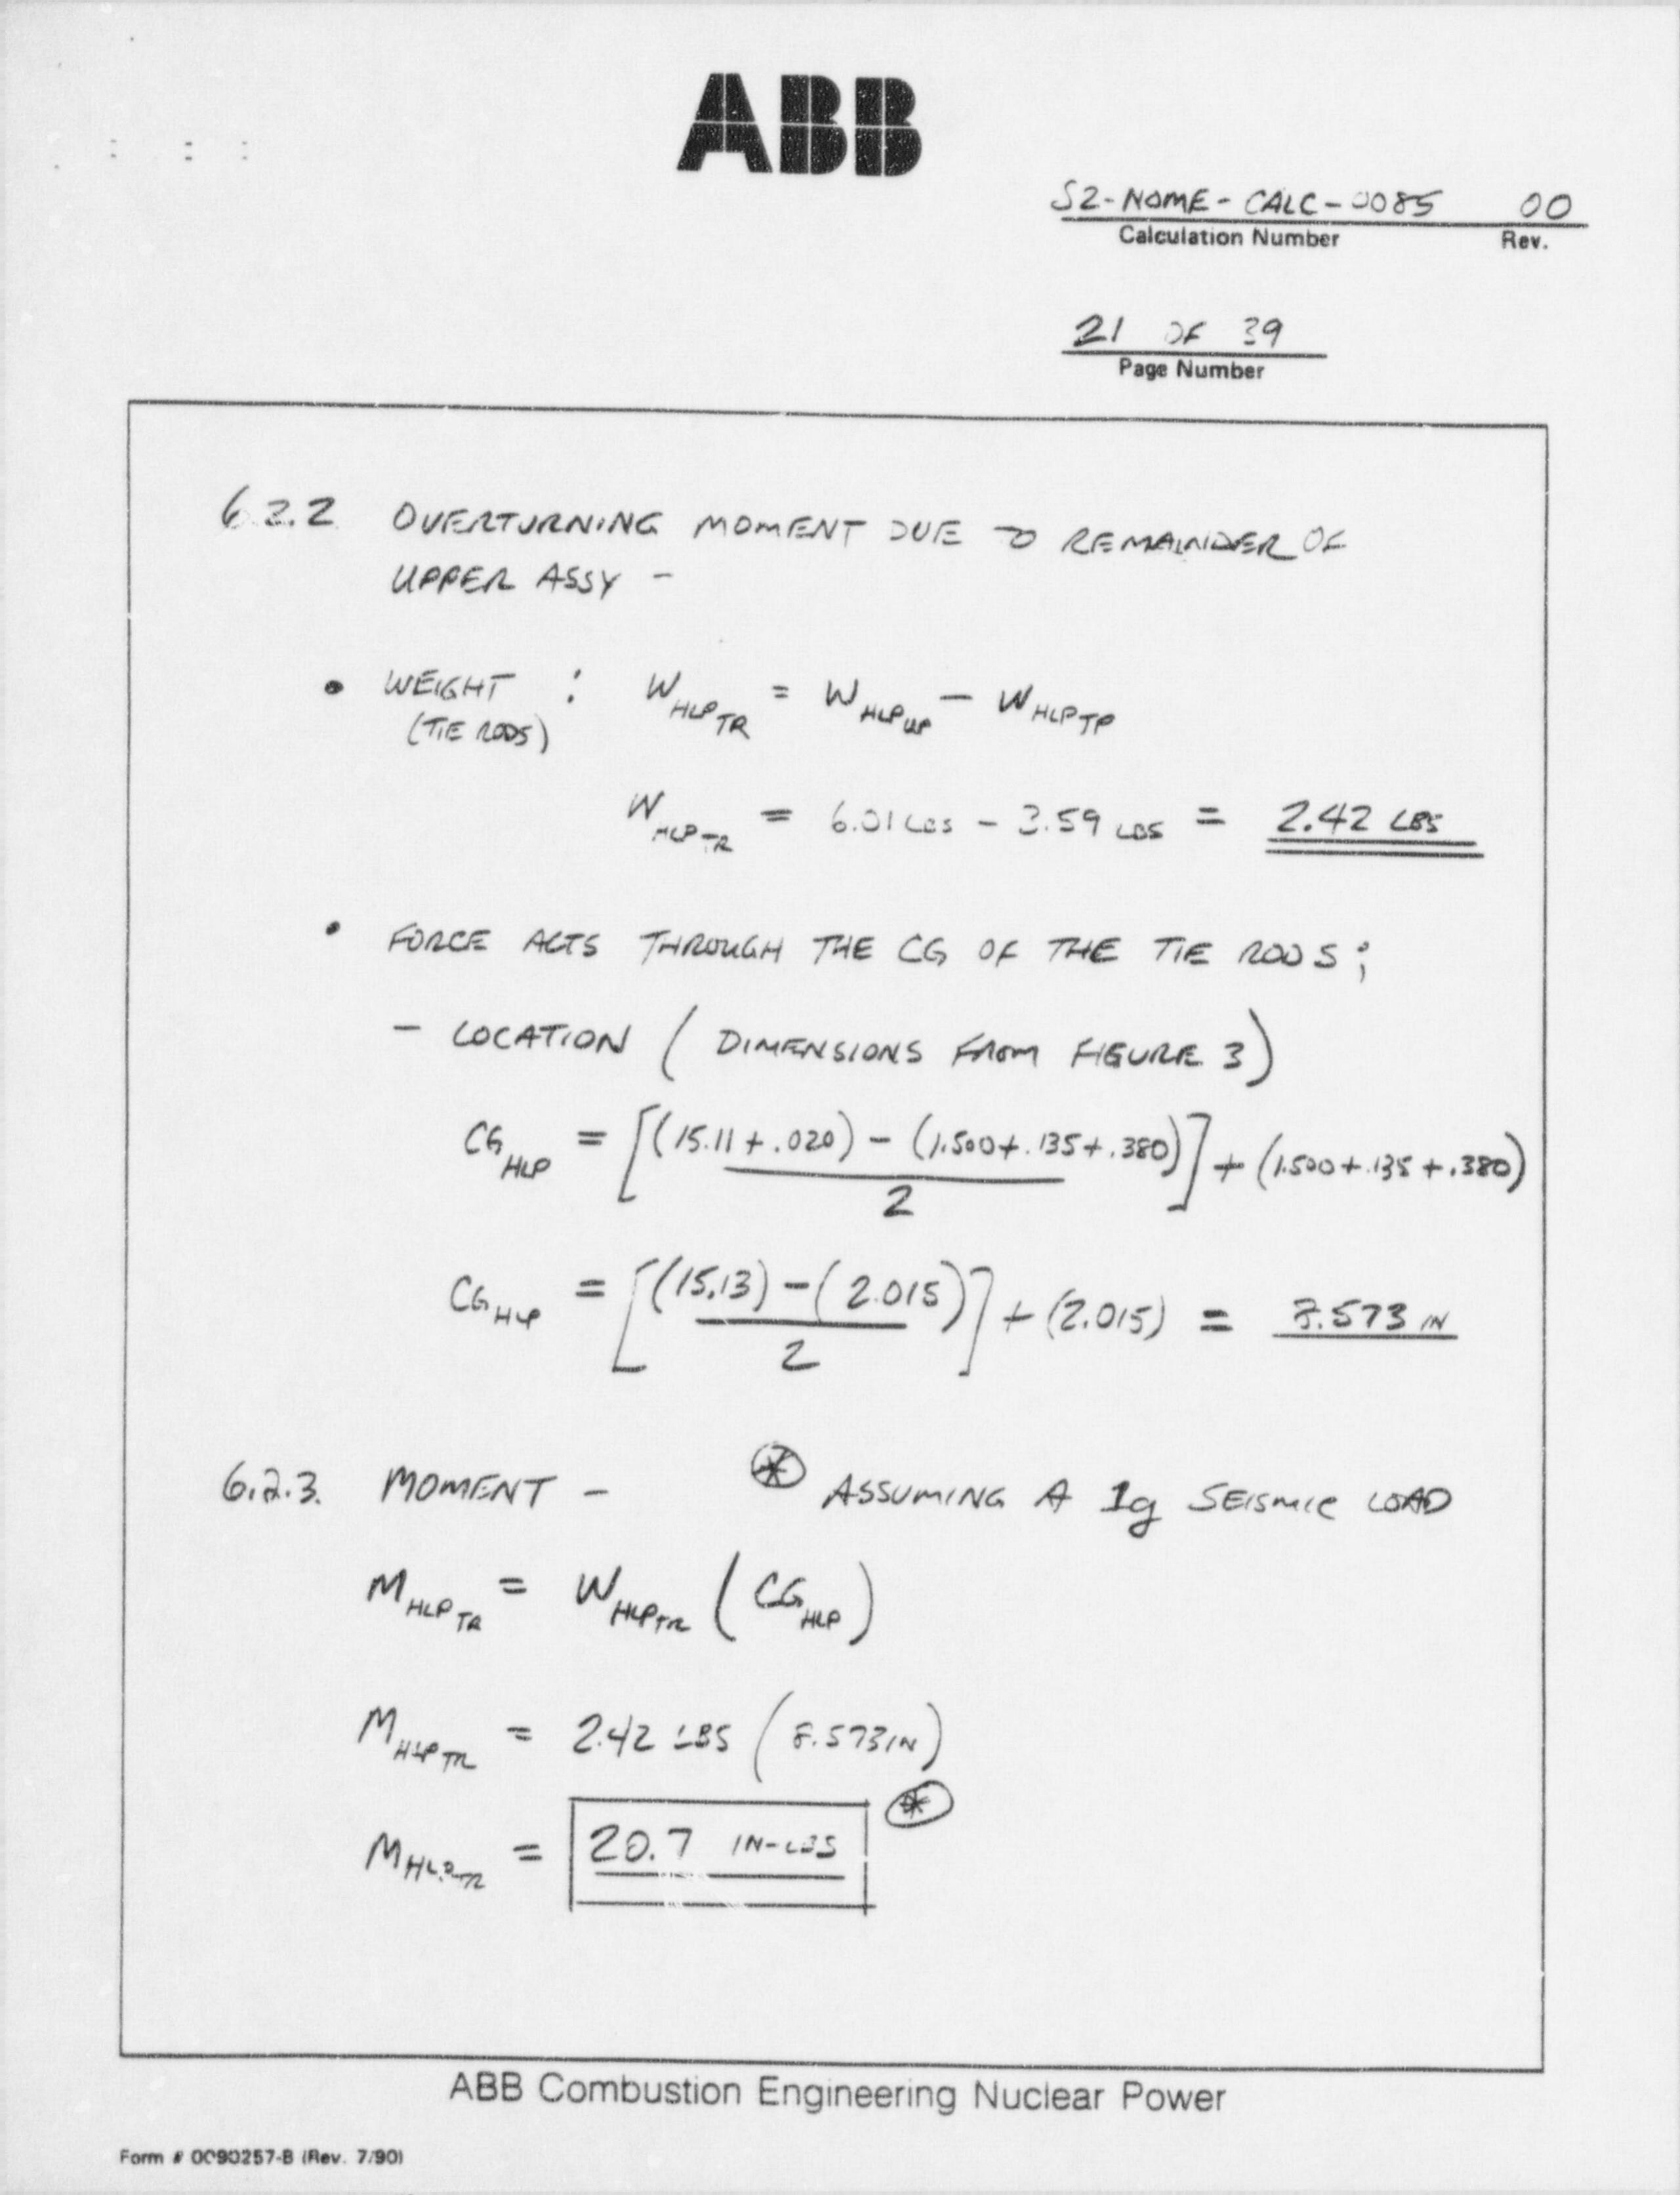 ABB
S2-NOME-CALC-0085 00
Calculation Number Rev.
21 OF 39
Page Number
6.2.2 OVERTURNING MOMENT DUE TO REMAINDER OF
UPPER ASSY -
• WEIGHT : W HLP TR = W HLP UP - W HLP TP
(TIE RODS)
W HLP TR = 6.01 LBS - 3.59 LBS = 2.42 LBS
• FORCE ACTS THROUGH THE CG OF THE TIE RODS;
- LOCATION ( DIMENSIONS FROM FIGURE 3 )
CG HLP = [(15.11 + .020) - (1.500 + .135 + .380)] + (1.500 + .135 + .380)
2
CG HLP = [(15.13) - (2.015)] + (2.015) = 8.573 IN
2
6.2.3. MOMENT - * ASSUMING A 1g SEISMIC LOAD
M HLP TR = W HLP TR ( CG HLP )
M HLP TR = 2.42 LBS ( 8.573 IN )
M HLP TR = 20.7 IN-LBS *
ABB Combustion Engineering Nuclear Power
Form # 0090257-B (Rev. 7/90)